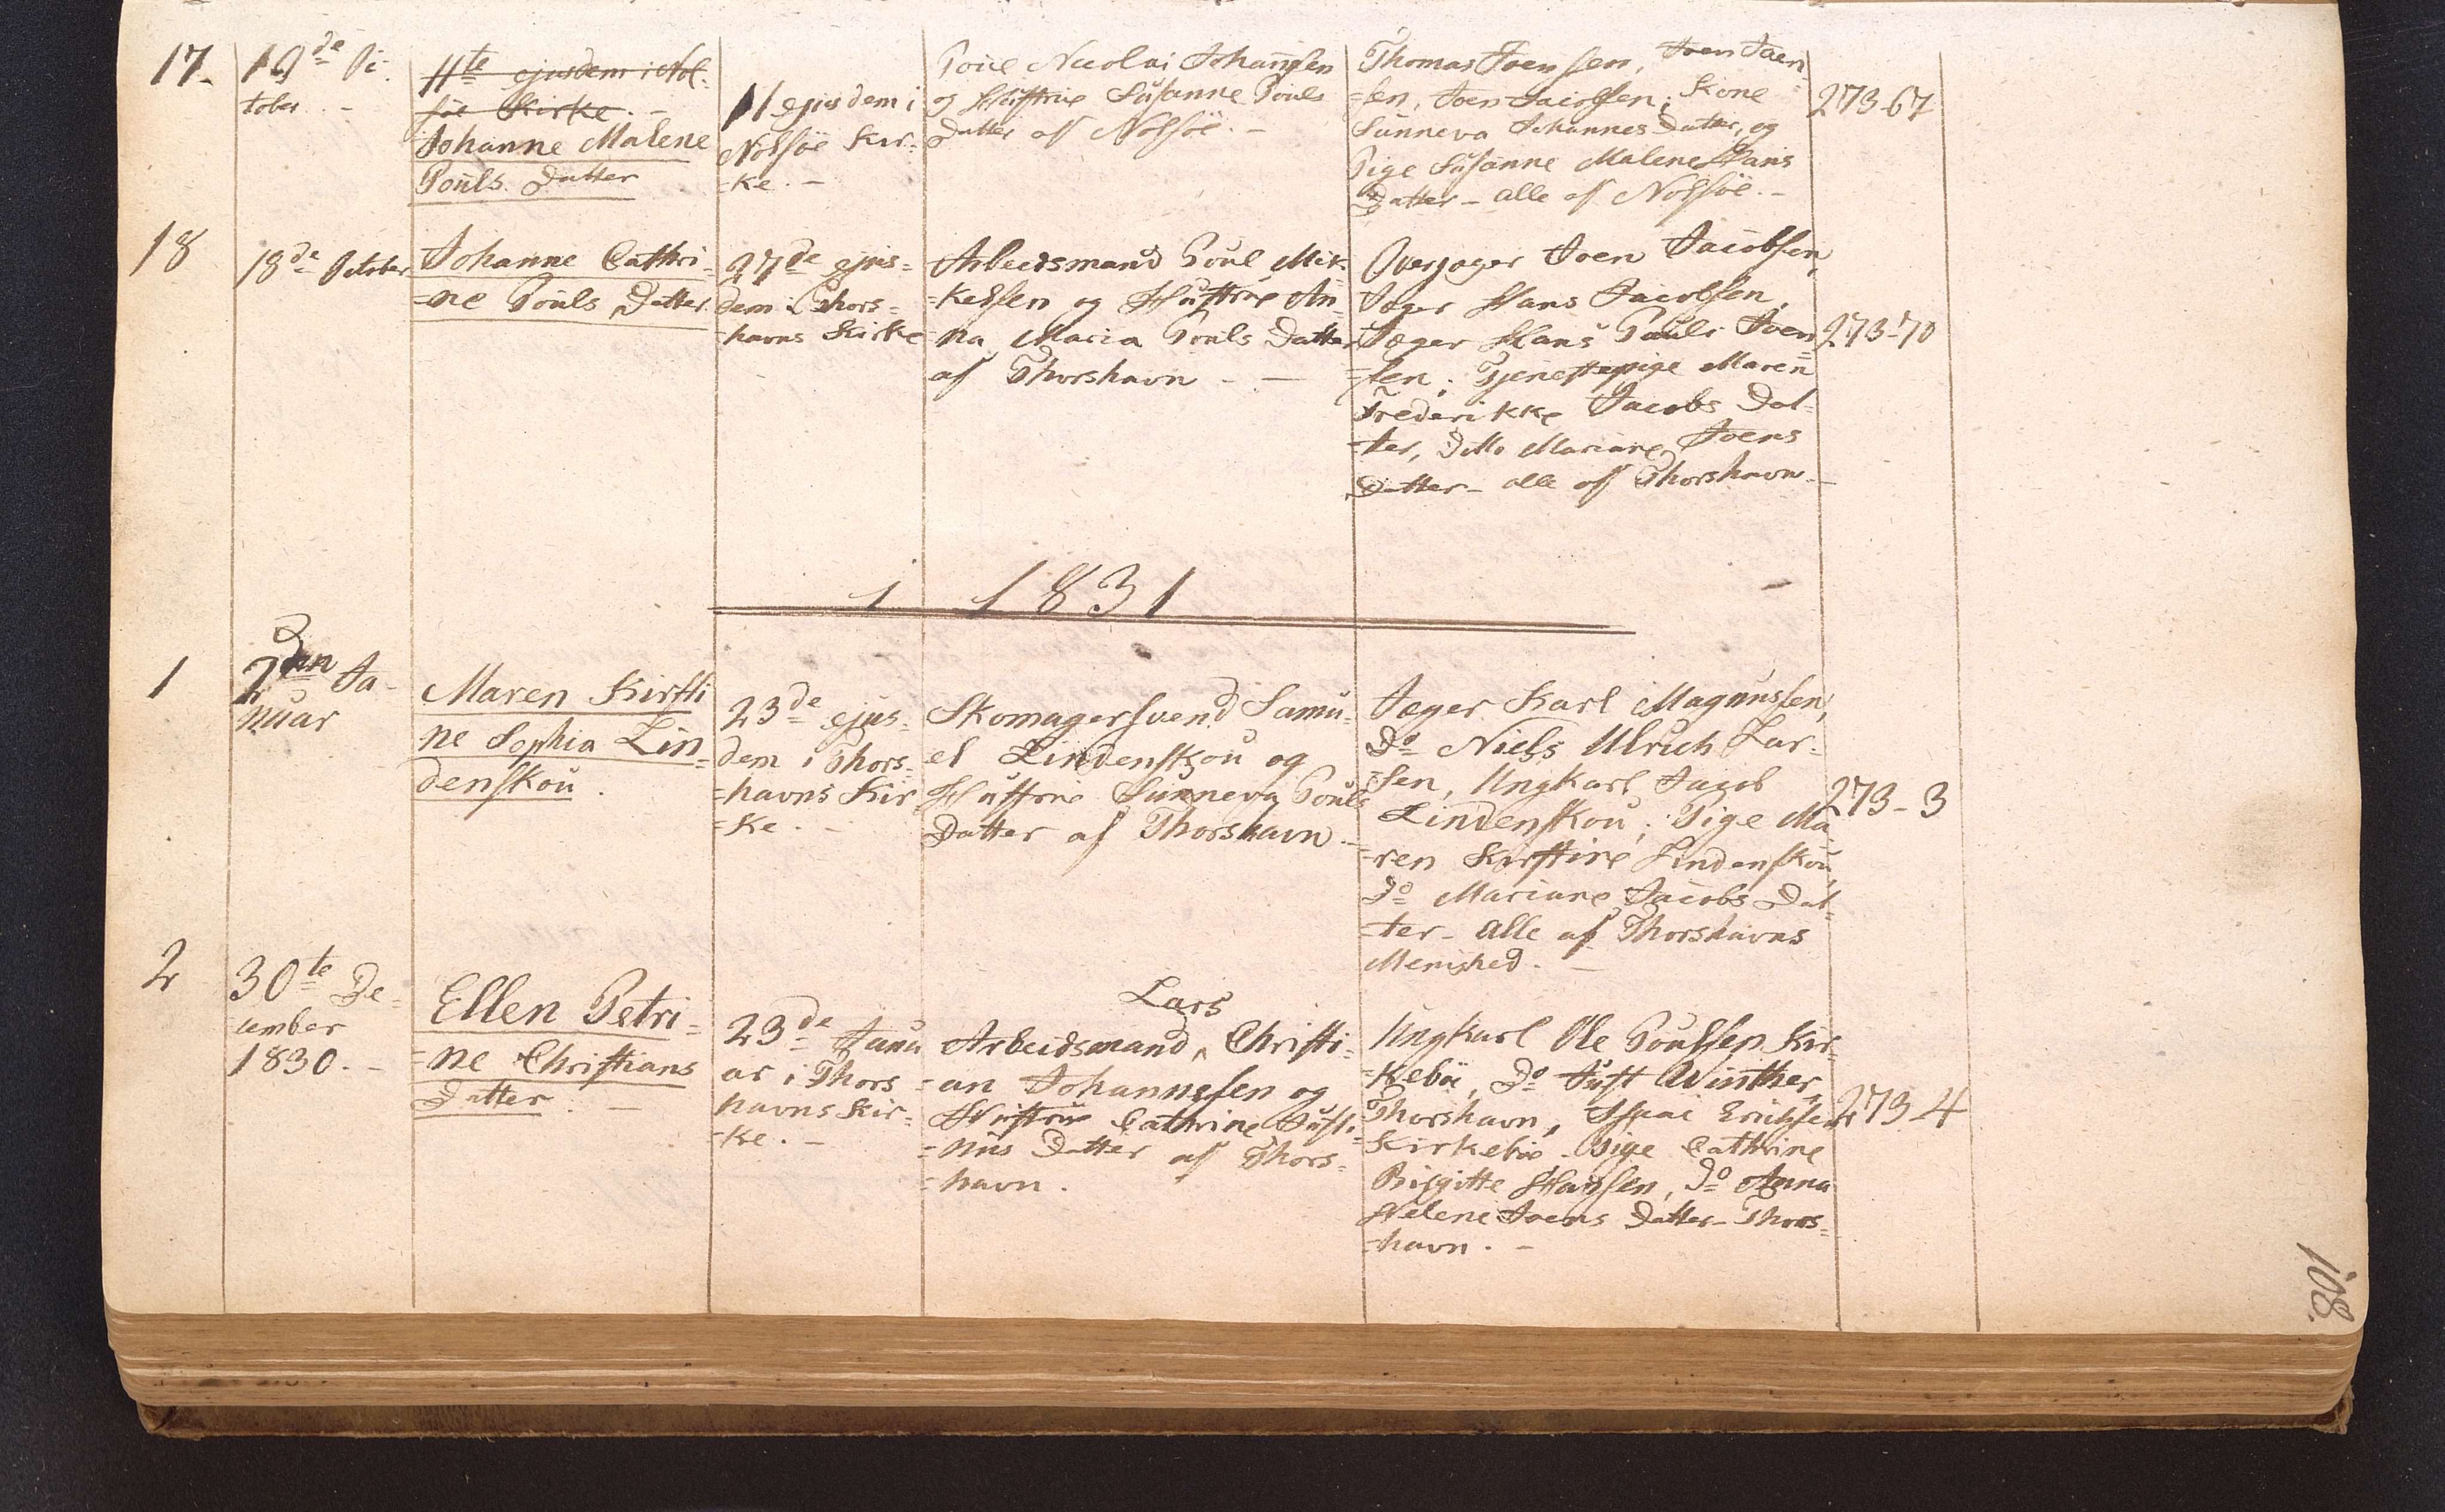 17.
10de Oc-
tober. -
11te ejusdem i Nol-
søe Kirke. -
Johanne Malene
Pouls Datter
11 ejusdem i
Nolsøe Kir-
=ke. -
Poul Nicolai Johannesen
og Hustrue Susanne Pouls
Datter af Nolsøe. -
Thomas Joensen, Joen Joen-
=sen, Joen Jacobsen; Kone
Sunneva Johannes Datter, og
Pige Susanne Malene Hans
Datter - alle af Nolsøe. -
273-67
18
18de October
Johanne Cathri-
=ne Pouls Datter
27de ejus=
dem i Thors=
=havns Kirke
Arbeidsmand Poul Mik-
=kelsen og Hustrue An-
=na Maria Pouls Datter
af Thorshavn - -
Overjæger Joen Jacobsen,
Jæger Hans Jacobsen,
Jæger Hans Pauli Joen=
=sen; Tjenestepige Maren
Frederikke Jacobs Dat-
=ter, Ditto Mariane Joens
Datter - alle af Thorshavn -
273-70
1831
1
Januar
Maren Kirsti
ne Sophia Lin=
denskou.
23de ejus-
dem i Thors-
=havns Kir
=ke. -
Skomagersvend Samu-
el Lindenskou og
Hustrue Sunneva Pouls
Datter af Thorshavn -
Jæger Karl Magnussen,
Do Niels Ulrich Lar-
sen, Ungkarl Jacob
Lindenskou; Pige Ma-
=ren Kirstine Lindenskou,
Do Mariane Jacobs Dat-
=ter - alle af Thorshavns
Menighed. -
273-3
2
30te De-
cember
1830. -
Ellen Petri-
=ne Christians
Datter. -
23de Janu
ar i Thors
havns Kir-
=ke. -
Lars
Arbeidsmand, Christi-
=an Johannesen og
Hustrue Cathrine Justi-
=nus Datter af Thors-
=havn.
Ungkarl Ole Poulsen Kir-
=kebøe, Do Just Winther,
Thorshavn, Isaac Erichsen
Kirkebøe - Pige Cathrine
Birgitte Hansen, Do Anna
Helene Joens Datter - Thors-
=havn. -
273-4
108.